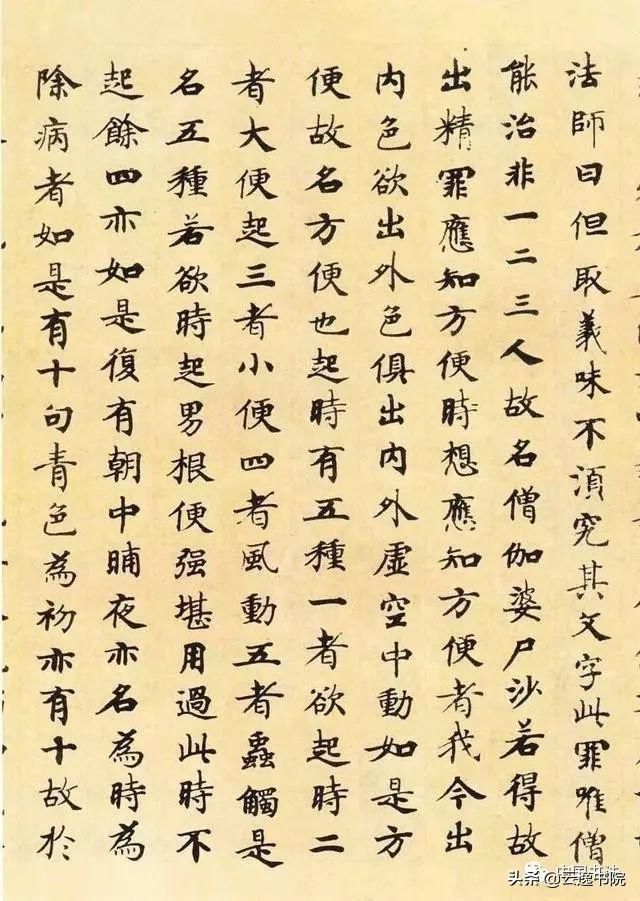 法師曰但取義味不湏究其文字此罪唯僧
能治非一二三人故名僧伽婆尸沙若得故
出精罪應知方便時想應知方便者我今出
内色欲出外色俱出内外虛空中動如是方
便故名方便也起時有五種一者欲起時二
者大便起三者小便四者風動五者蟲觸是
名五種若欲時起男根便强堪用過此時不
起餘四亦如是復有朝中晡夜亦名為時為
除病者如是有十句青色為初亦有十故於
中国书法
头条@云逸书院